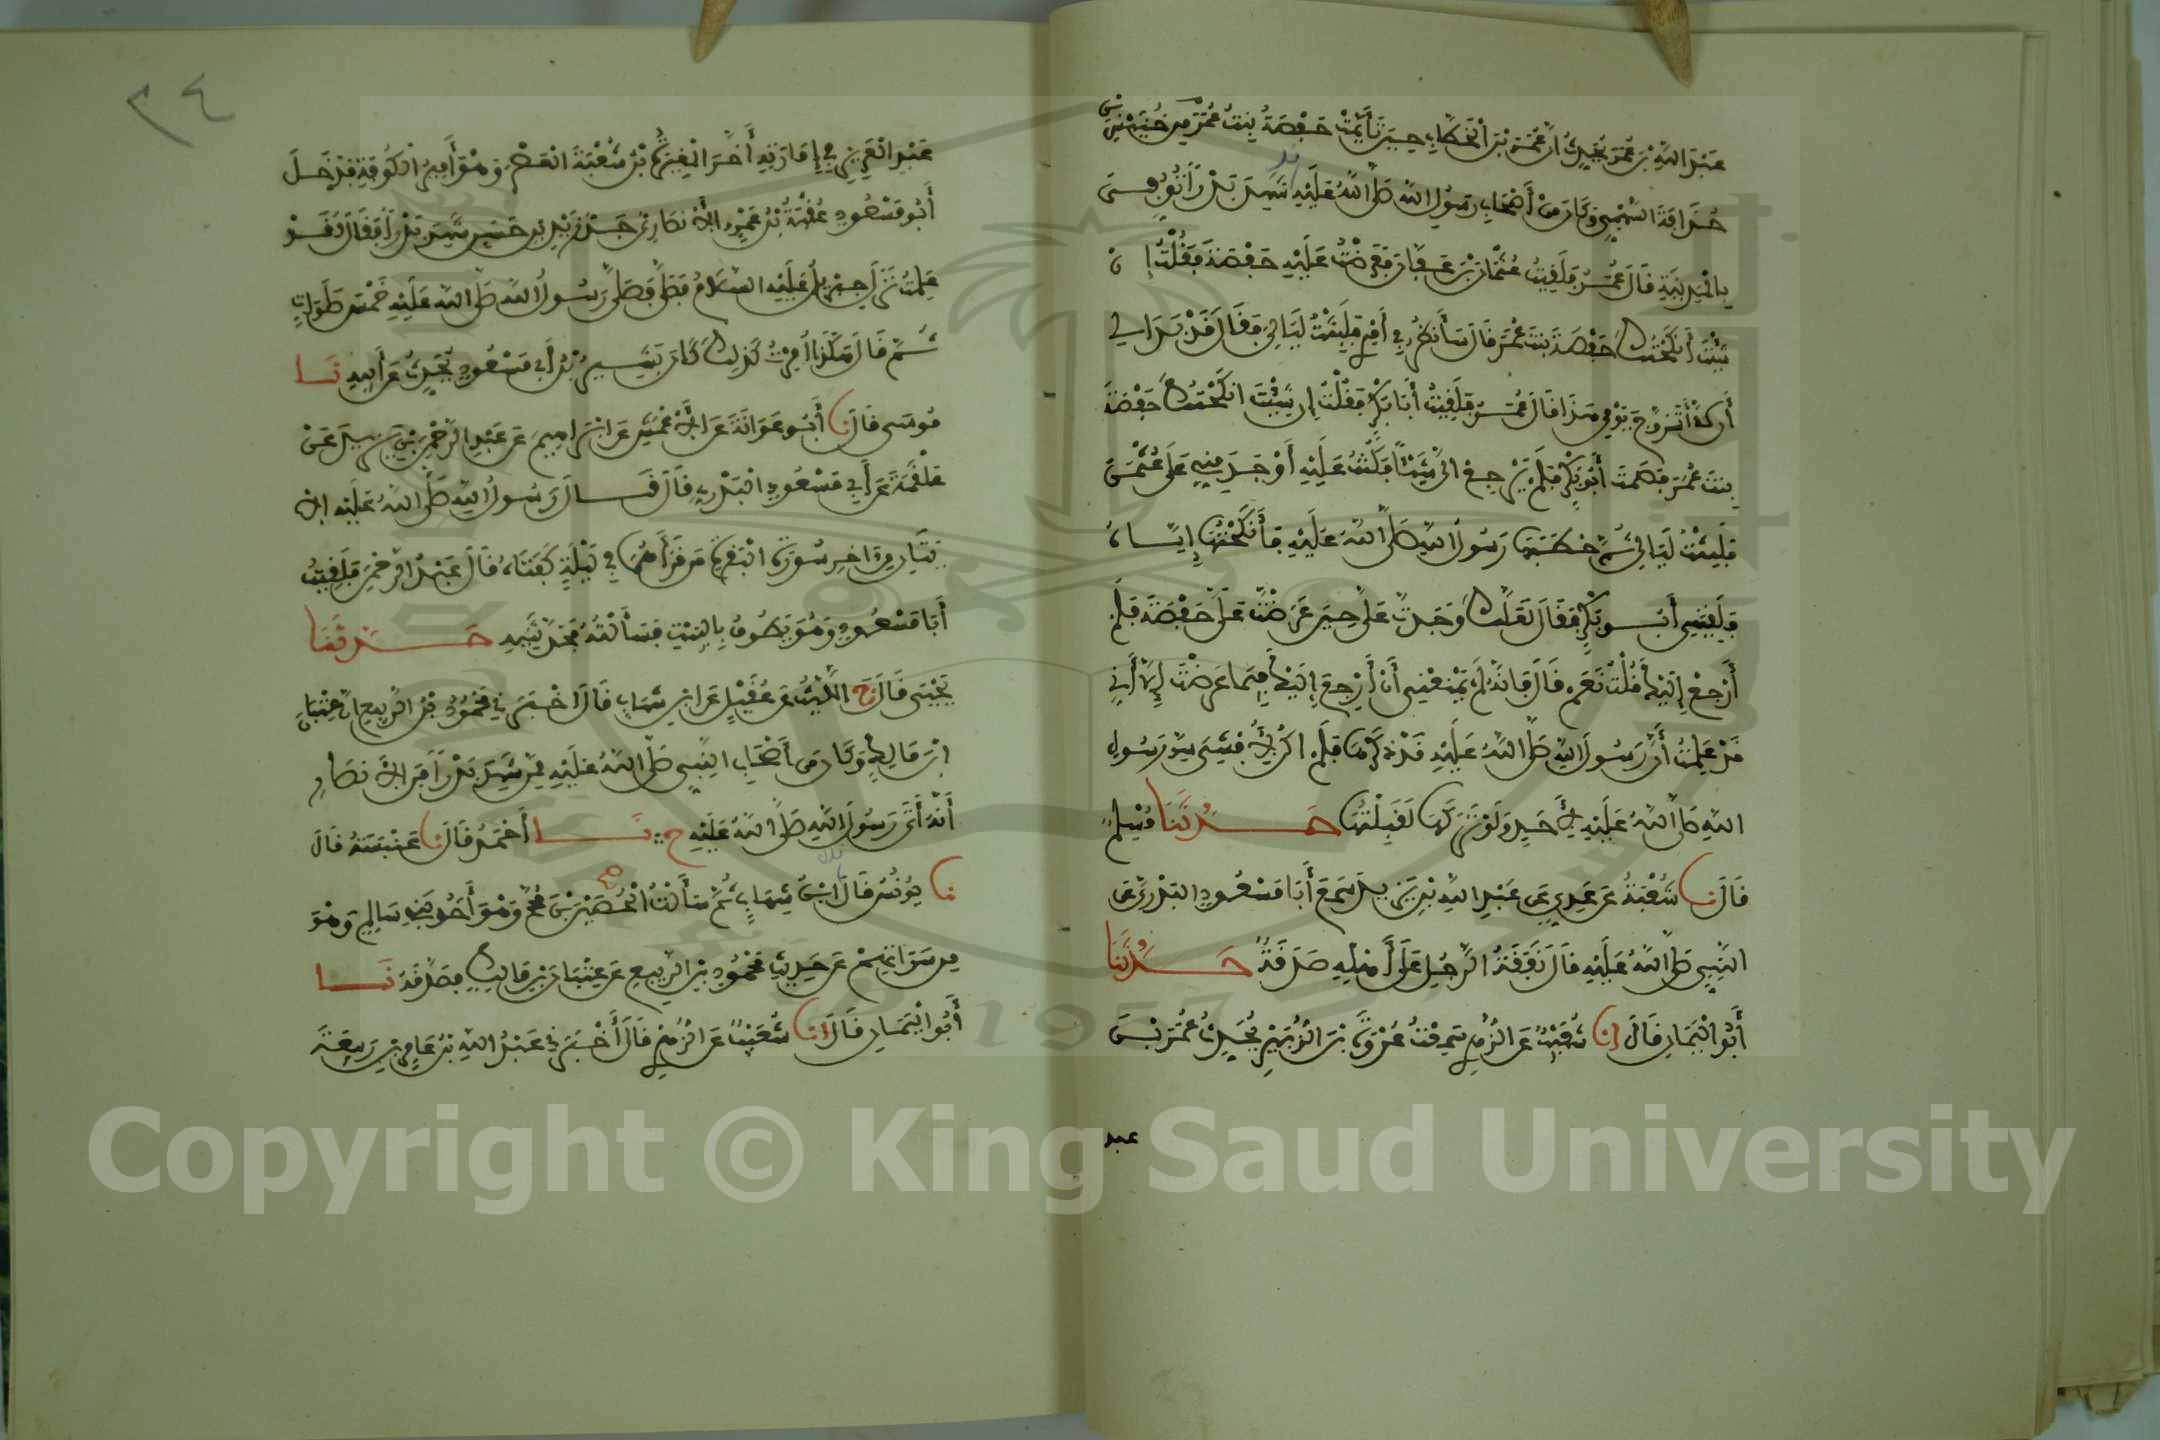 عَبْدَ اللَّهِ بْنَ عُمَرَ يُحَدِّثُ أَنَّ عُمَرَ بْنَ الْخَطَّابِ حِينَ تَأَيَّمَتْ حَفْصَةُ بِنْتُ عُمَرَ مِن خُنَيْسِ بْنِ
حُذَافَةَ السَّهْمِيِّ وَكَانَ مِنْ أَصْحَابِ رَسُولِ اللَّهِ صَلَّى اللَّهُ عَلَيْهِ شَهِدَ بَدْرًا تُوُفِّيَ
بِالْمَدِينَةِ قَالَ عُمَرُ فَلَقِيتُ عُثْمَانَ بْنَ عَفَّانَ فَعَرَضْتُ عَلَيْهِ حَفْصَةَ فَقُلْتُ إِن
شِئْتَ أَنْكَحْتُكَ حَفْصَةَ بِنْتَ عُمَرَ قَالَ سَأَنْظُرُ فِي أَمْرِي فَلَبِثْتُ لَيَالِيَ فَقَالَ قَدْ بَدَا لِي
أَن لَّا أَتَزَوَّجَ يَوْمِي هَذَا قَالَ عُمَرُ فَلَقِيتُ أَبَا بَكْرٍ فَقُلْتُ إِن شِئْتَ أَنْكَحْتُكَ حَفْصَةَ
بِنْتَ عُمَرَ فَصَمَتَ أَبُو بَكْرٍ فَلَمْ يَرْجِعْ إِلَيَّ شَيْئًا فَكُنْتُ عَلَيْهِ أَوْجَدَ مِنِّي عَلَى عُثْمَنَ
فَلَبِثْتُ لَيَالِيَ ثُمَّ خَطَبَهَا رَسُولُ اللَّهِ صَلَّى اللَّهُ عَلَيْهِ فَأَنْكَحْتُهَا إِيَّاهُ
فَلَقِيَنِي أَبُو بَكْرٍ فَقَالَ لَعَلَّكَ وَجَدتَّ عَلَيَّ حِينَ عَرَضْتَ عَلَيَّ حَفْصَةَ فَلَمْ
أَرْجِعْ إِلَيْكَ قُلْتُ نَعَمْ قَالَ فَإِنَّهُ لَمْ يَمْنَعْنِي أَنْ أَرْجِعَ إِلَيْكَ فِيمَا عَرَضْتَ إِلَّا أَنِّي
قَدْ عَلِمْتُ أَنَّ رَسُولَ اللَّهِ صَلَّى اللَّهُ عَلَيْهِ قَدْ ذَكَرَهَا فَلَمْ أَكُنْ لِأُفْشِيَ سِرَّ رَسُولِ
اللَّهِ صَلَّى اللَّهُ عَلَيْهِ وَلَوْ تَرَكَهَا لَقَبِلْتُهَا حَدَّثَنَا مُسْلِم
قَالَ نا شُعْبَةُ عَنْ عَدِيٍّ عَن عَبْدِ اللَّهِ بْنِ يَزِيدَ سَمِعَ أَبَا مَسْعُودٍ الْبَدْرِيَّ عَن
النَّبِيِّ صَلَّى اللَّهُ عَلَيْهِ قَالَ نَفَقَةُ الرَّجُلِ عَلَى أَهْلِهِ صَدَقَةٌ حَدَّثَنَا
أَبُو الْيَمَانِ قَالَ أنا شُعَيْبٌ عَنِ الزُّهْرِيِّ سَمِعْتُ عُرْوَةَ بْنَ الزُّبَيْرِ يُحَدِّثُ عُمَرَ بْنَ
عبد
٣٤
عَبْدِ الْعَزِيزِ فِي إِمَارَتِهِ أَخَّرَ الْمُغِيرَةُ بْنُ شُعْبَةَ الْعَصْرَ وَهْوَ أَمِيرُ الْكُوفَةِ فَدَخَلَ
أَبُو مَسْعُودٍ عُقْبَةُ بْنُ عَمْرٍو الْأَنْصَارِيُّ جَدُّ زَيْدِ بْنِ حَسَنٍ شَهِدَ بَدْرًا فَقَالَ لَقَدْ
عَلِمْتَ نَزَلَ جِبْرِيلُ عَلَيْهِ السَّلَامُ فَصَلَّى فَصَلَّى رَسُولُ اللَّهِ صَلَّى اللَّهُ عَلَيْهِ خَمْسَ صَلَوَاتٍ
ثُمَّ قَالَ هَكَذَا أُمِرْتُ كَذَلِكَ كَانَ بَشِيرُ بْنُ أَبِي مَسْعُودٍ يُحَدِّثُ عَنْ أَبِيهِ نَا
مُوسَى قَالَ نا أَبُو عَوَانَةَ عَنِ الْأَعْمَشِ عَنْ إِبْرَاهِيمَ عَنْ عَبْدِ الرَّحْمَنِ بْنِ يَزِيدَ عَنْ
عَلْقَمَةَ عَنْ أَبِي مَسْعُودٍ الْبَدْرِيِّ قَالَ قَالَ رَسُولُ اللَّهِ صَلَّى اللَّهُ عَلَيْهِ الْأ
يَتَانِ مِنْ آخِرِ سُورَةِ الْبَقَرَةِ مَن قَرَأَهُمَا فِي لَيْلَةٍ كَفَتَاهُ قَالَ عَبْدُ الرَّحْمَنِ فَلَقِيتُ
أَبَا مَسْعُودٍ وَهُوَ يَطُوفُ بِالْبَيْتِ فَسَأَلْتُهُ فَحَدَّثَنِيهِ حَدَّثَنَا
يَحْيَى قَالَ نا اللَّيْثُ عَنْ عُقَيْلٍ عَنِ ابْنِ شِهَابٍ قَالَ أَخْبَرَنِي مَحْمُودُ بْنُ الرَّبِيعِ أَنَّ عِتْبَانَ
ابْنَ مَالِكٍ وَكَانَ مِن أَصْحَابِ النَّبِيِّ صَلَّى اللَّهُ عَلَيْهِ مِمَّنْ شَهِدَ بَدْرًا مِنَ الْأَنْصَارِ
أَنَّهُ أَتَى رَسُولَ اللَّهِ صَلَّى اللَّهُ عَلَيْهِ ح نَا أَحْمَدُ قَالَ نا عَنْبَسَةُ قَالَ
نا يُونُسُ قَالَ ابْنُ شِهَابٍ ثُمَّ سَأَلْتُ الْحُصَيْنَ بْنَ مُحَمَّدٍ وَهْوَ أَحَدُ بَنِي سَالِمٍ وَهْوَ
مِن سَرَاتِهِمْ عَنْ حَدِيثِ مَحْمُودِ بْنِ الرَّبِيعِ عَن عِتْبَانَ بْنِ مَالِكٍ فَصَدَّقَهُ نَا
أَبُو الْيَمَانِ قَالَ أنا شُعَيْبٌ عَنِ الزُّهْرِيِّ قَالَ أَخْبَرَنِي عَبْدُ اللَّهِ بْنُ عَامِرِ بْنِ رَبِيعَةَ
Copyright © King Saud University
1957